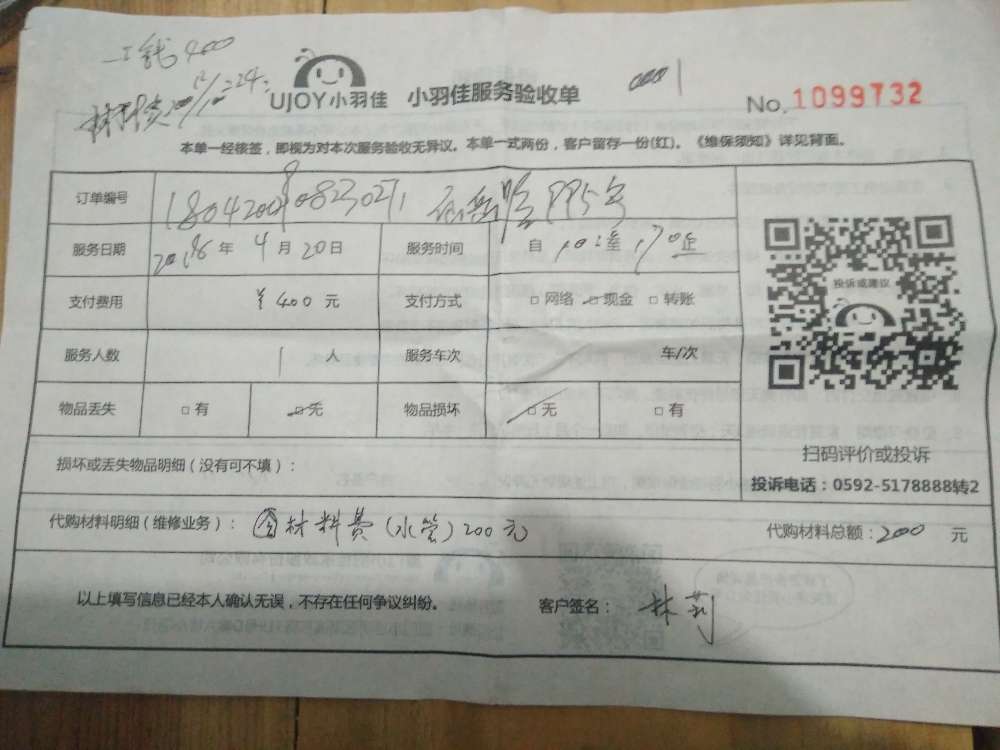 工钱400
UJOY小羽佳 小羽佳服务验收单
No. 1099732
本单一经核签，即视为对本次服务验收无异议。本单一式两份，客户留存一份(红)。《维保须知》详见背面。
订单编号
服务日期 年 4 月 20 日 服务时间 自 至
支付费用 ¥ 400 元 支付方式 □ 网络 □ 现金 □ 转账
服务人数 1 人 服务车次 车/次
物品丢失 □ 有 □ 无 物品损坏 □ 无 □ 有
投诉或建议
扫码评价或投诉
投诉电话：0592-5178888转2
损坏或丢失物品明细（没有可不填）：
代购材料明细（维修业务）： 材料费（水管）200元 代购材料总额：200 元
以上填写信息已经本人确认无误，不存在任何争议纠纷。 客户签名： 林莉